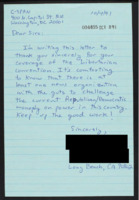 C-SPAN
400 N. Capitol St. NW
Washington, DC 20001
Dear Sirs:
I'm writing this letter to
thank you sincerely for your
coverage of the Libertarian
Convention. It's comforting
to know that there is at
least one news organization
with the guts to challenge
the current Republican/Democratic
monopoly on power in this country.
Keep up the good work!
Sincerely,
Long Beach, CA